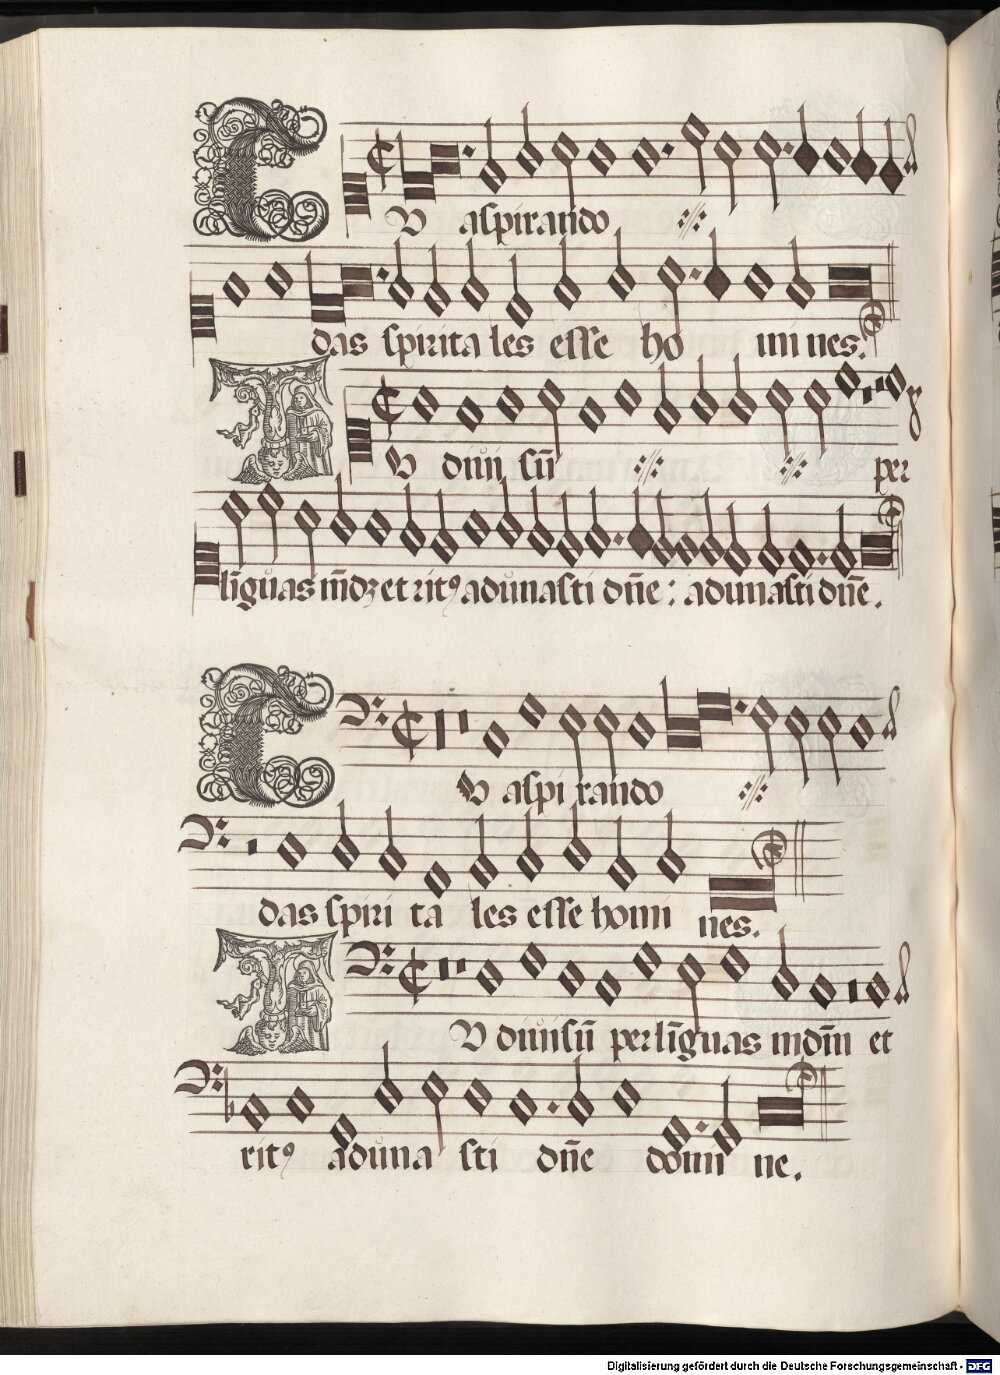 TU aspirando
das spirita les esse ho mi nes.
TU diuisũ per
lĩguas mũdꝫ et ritꝰ adunasti dñe: adunasti dñe.
TU aspi rando
das spiri ta les esse homi nes.
TU diuisũ per lĩguas mdm̄ et
ritꝰ aduna sti dñe domi ne.
Digitalisierung gefördert durch die Deutsche Forschungsgemeinschaft - DFG